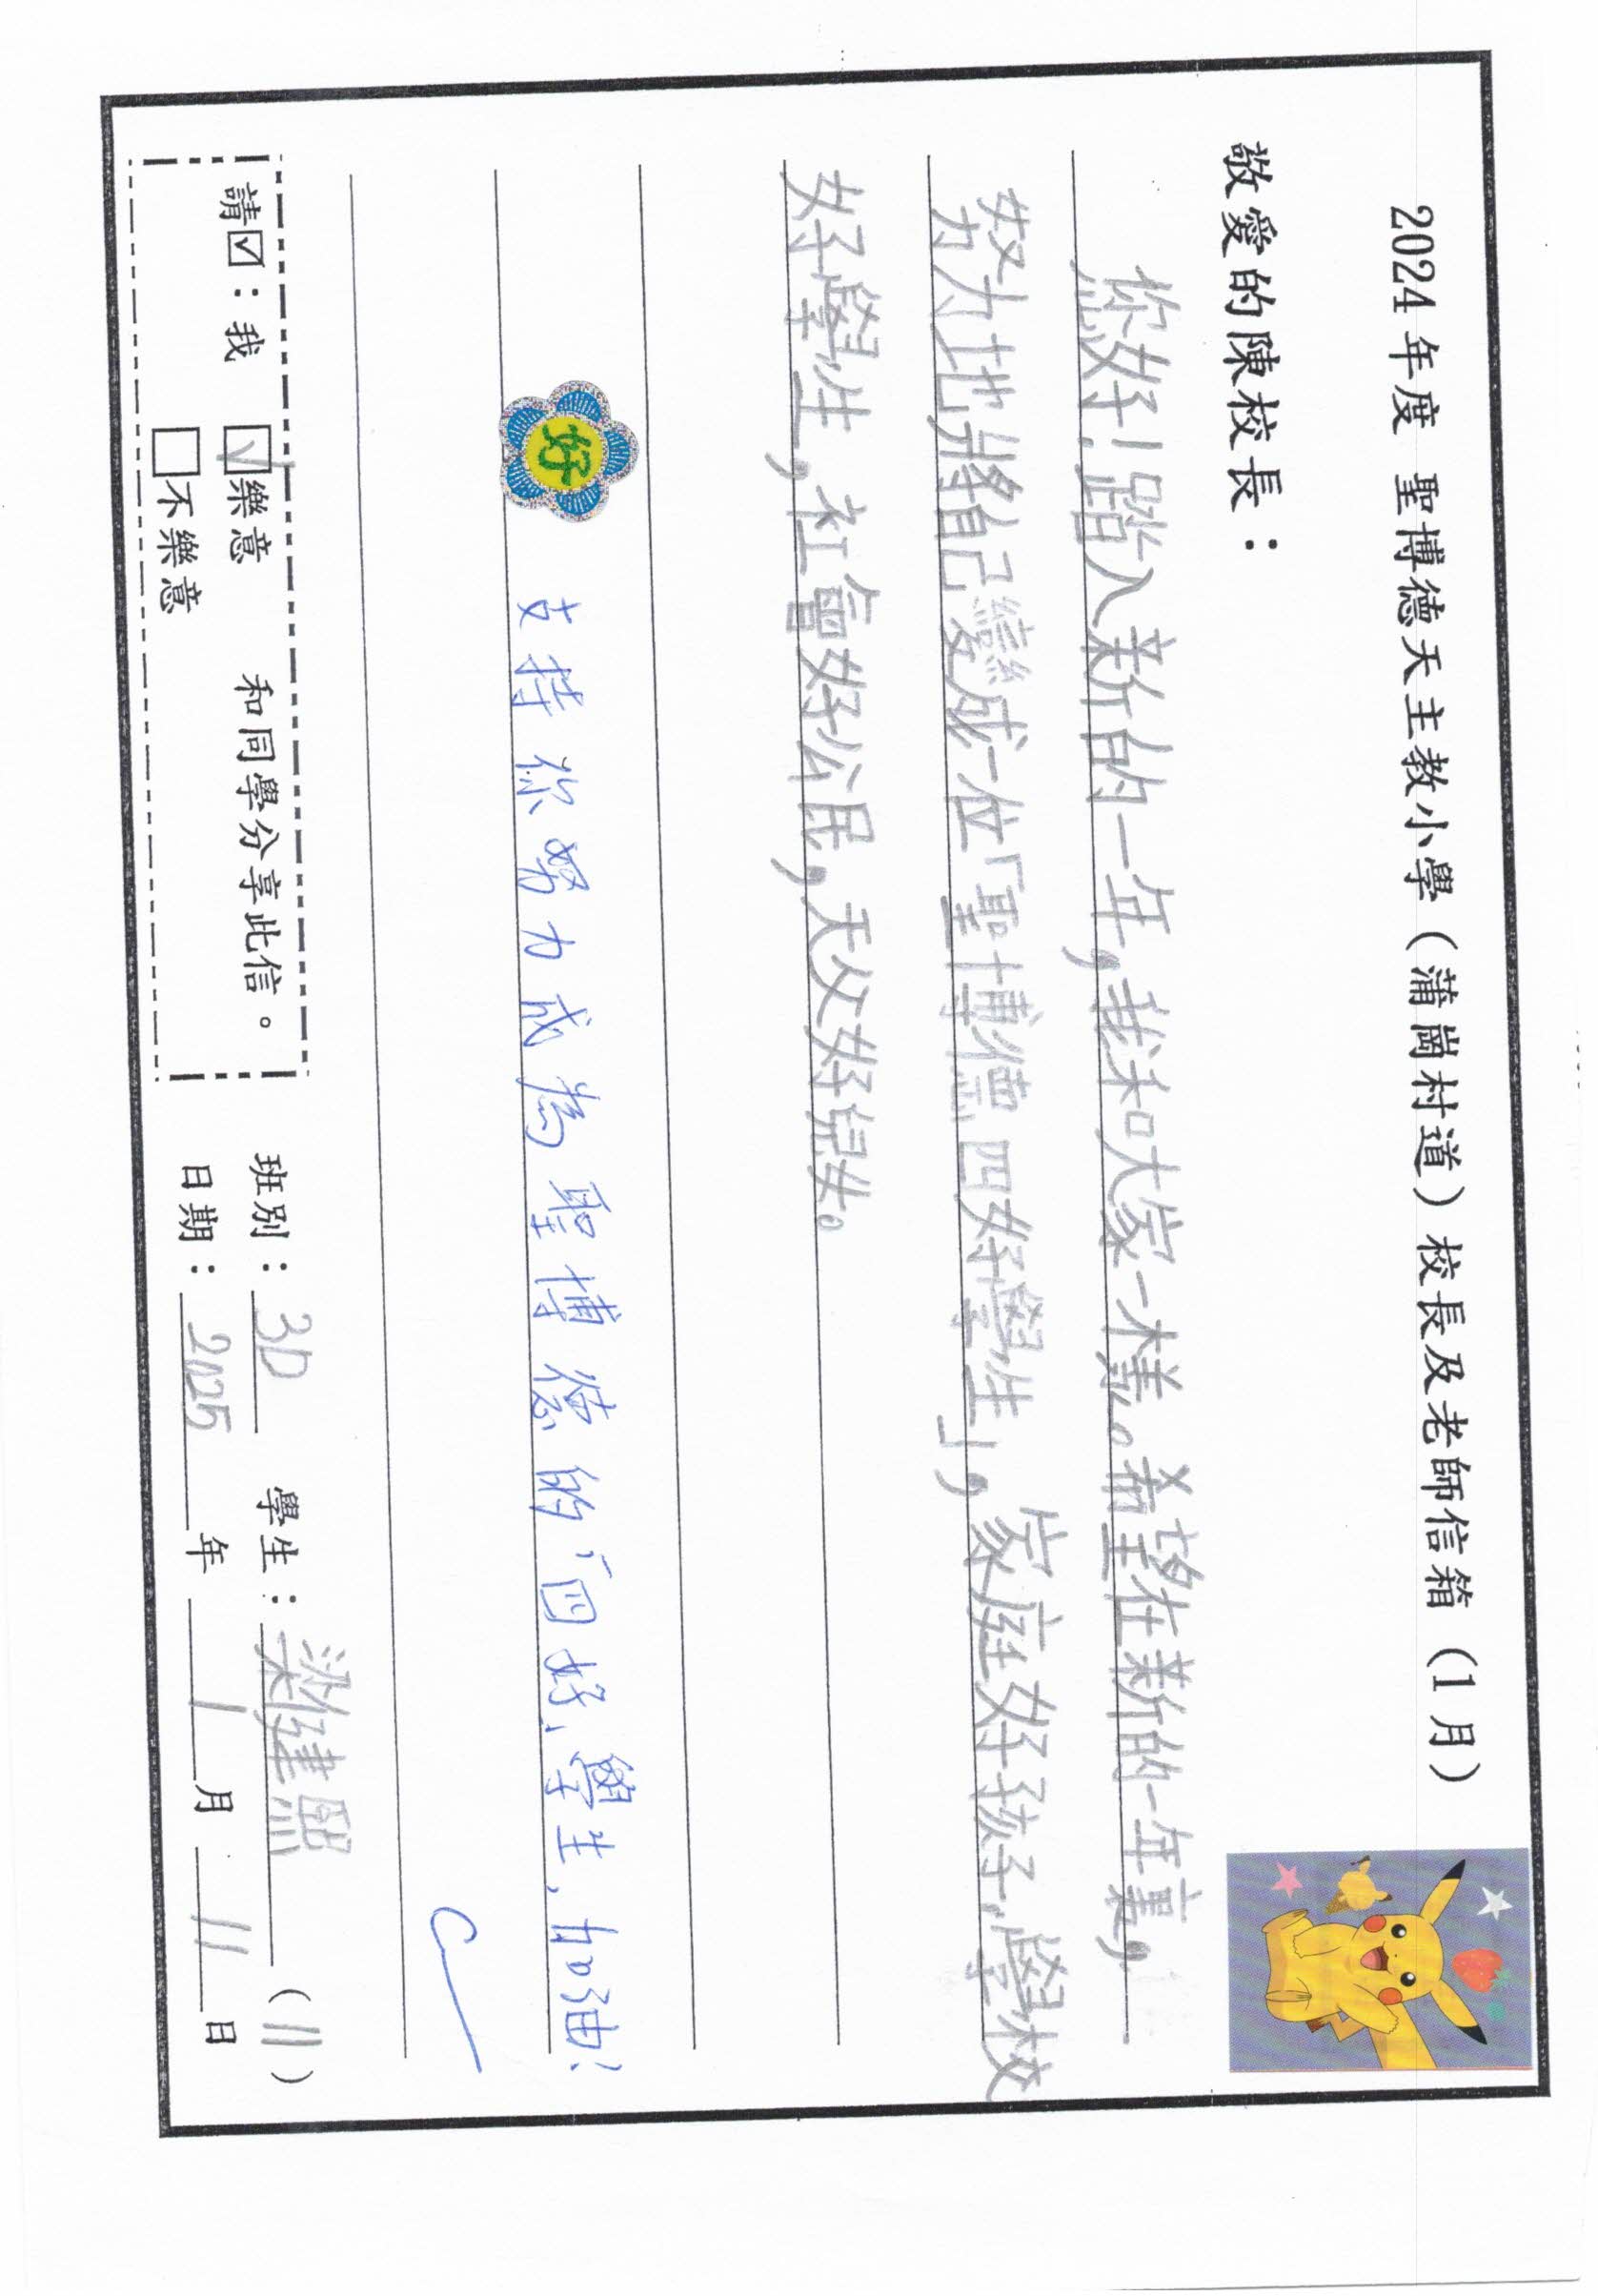 2024年度 聖博德天主教小學（蒲崗村道）校長及老師信箱（1月）
敬愛的陳校長：
您好！踏入新的一年，我和大家一樣。希望在新的一年裏，
努力地將自己變成一位「聖博德四好學生」，家庭好孩子，學校
好學生，社會好公民，天父好兒女。
好
支持你努力成為聖博德的「四好」學生，加油！
請☑：我 ☑樂意 和同學分享此信。
□不樂意
班別：3D 學生：梁健熙（11）
日期：2025年1月11日